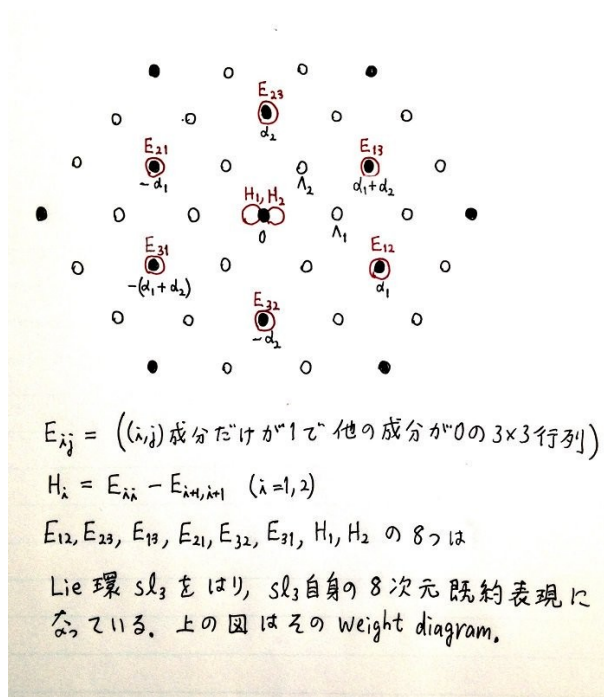 E₂₃
α₂
E₂₁
-α₁
E₁₃
α₁+α₂
Λ₂
H₁,H₂
0
Λ₁
E₃₁
-(α₁+α₂)
E₁₂
α₁
E₃₂
-α₂
E_{ij} = ((i,j)成分だけが1で他の成分が0の3×3行列)
H_i = E_{ii} - E_{i+1,i+1} (i=1,2)
E₁₂, E₂₃, E₁₃, E₂₁, E₃₂, E₃₁, H₁, H₂ の 8つは
Lie 環 sl₃ をはり, sl₃自身の 8次元 既約表現に
なっている. 上の図はその weight diagram.